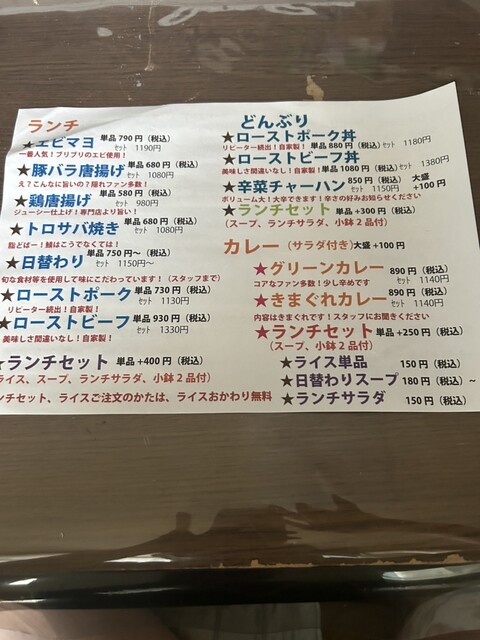 ランチ
★エビマヨ 単品 790円（税込）
セット 1190円
一番人気！プリプリのエビ使用！
★豚バラ唐揚げ 単品 680円（税込）
セット 1080円
え？こんなに旨いの？隠れファン多数！
★鶏唐揚げ 単品 580円（税込）
セット 980円
ジューシー仕上げ！専門店より旨い！
★トロサバ焼き 単品 680円（税込）
セット 1080円
脂どばー！鯖はこうでなくては！
★日替わり 単品 750円～（税込）
セット 1150円～
旬な食材等を使用して味にこだわっています！（スタッフまで）
★ローストポーク 単品 730円（税込）
セット 1130円
リピーター続出！自家製！
★ローストビーフ 単品 930円（税込）
セット 1330円
美味しさ間違いなし！自家製！
★ランチセット 単品 +400円（税込）
ライス、スープ、ランチサラダ、小鉢2品付）
ンチセット、ライスご注文のかたは、ライスおかわり無料
どんぶり
★ローストポーク丼
リピーター続出！自家製！ 単品 880円（税込）セット 1180円
★ローストビーフ丼
美味しさ間違いなし！自家製！ 単品 1080円（税込）セット 1380円
★辛菜チャーハン 850円（税込） 大盛
セット 1150円 +100円
ボリューム大！大辛できます！辛さの好みお知らせください
★ランチセット 単品 +300円（税込）
（スープ、ランチサラダ、小鉢2品付）
カレー（サラダ付き）大盛 +100円
★グリーンカレー 890円（税込）
セット 1140円
コアなファン多数！少し辛めです
★きまぐれカレー 890円（税込）
セット 1140円
内容はきまぐれです！スタッフにお聞きください
★ランチセット 単品 +250円（税込）
（スープ、小鉢2品付）
★ライス単品 150円（税込）
★日替わりスープ 180円（税込）～
★ランチサラダ 150円（税込）